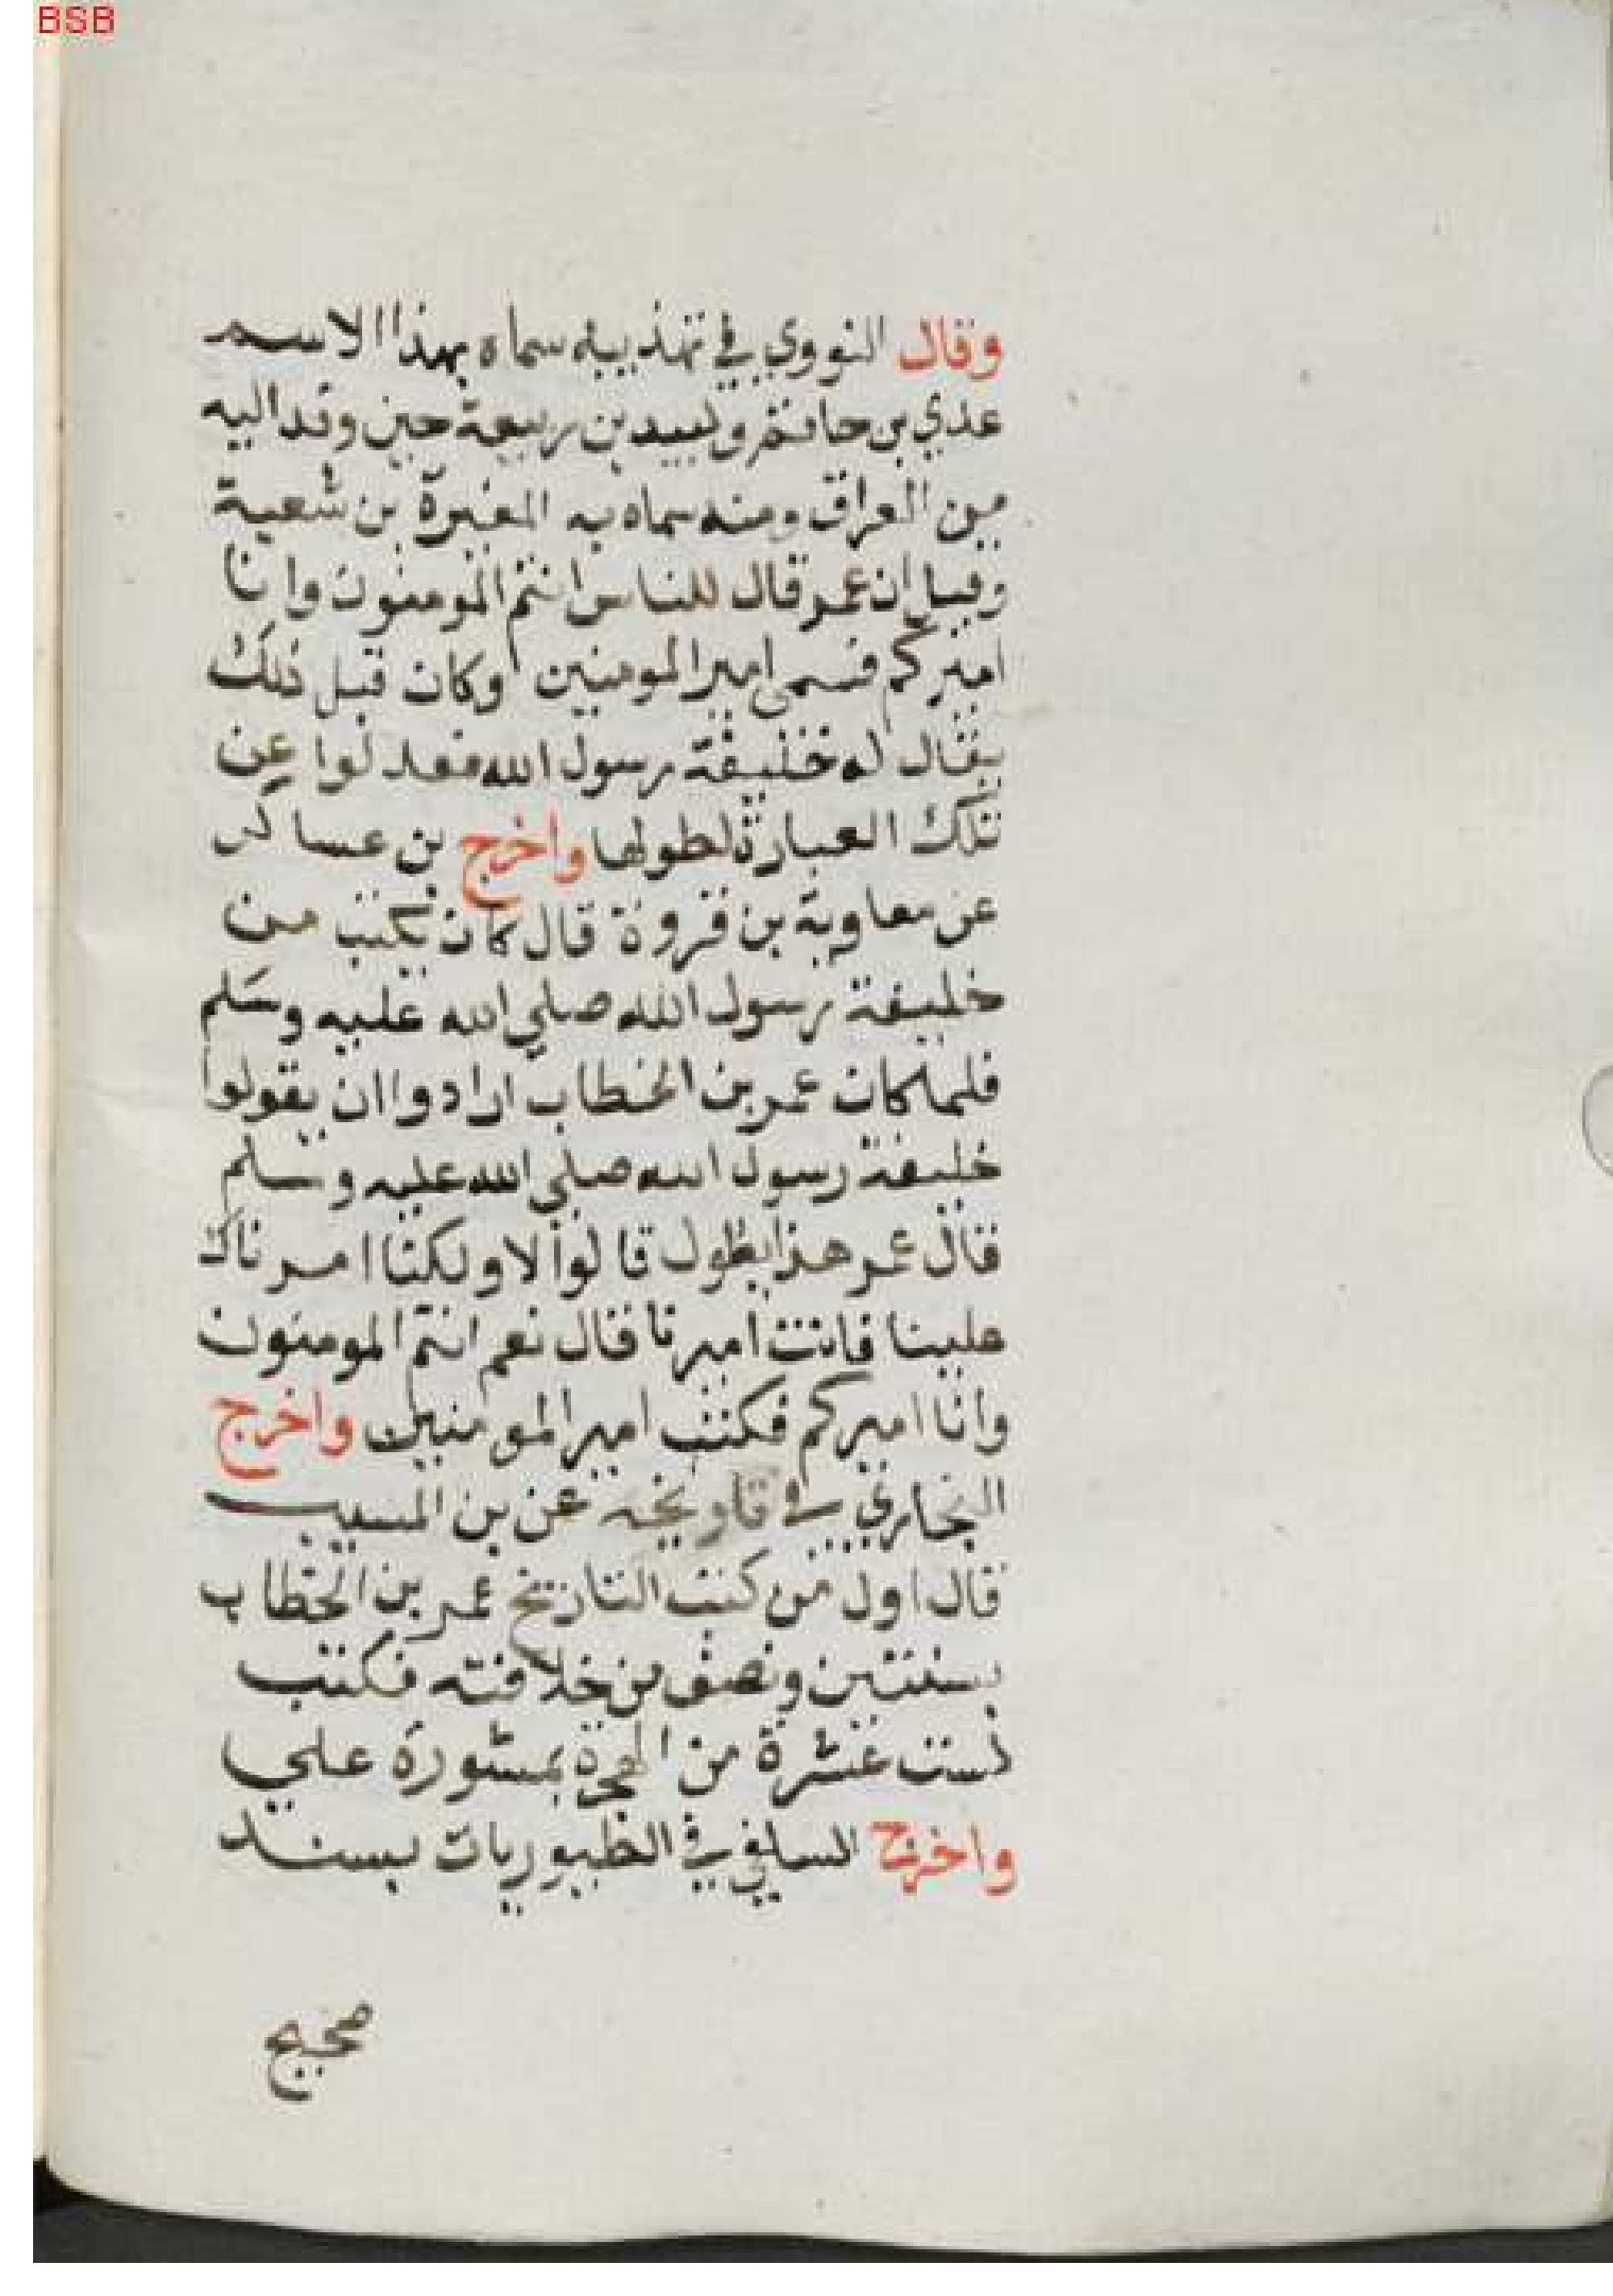 BSB
وقال النووي في تهذيبه سماه بهذا الاسم
عدي بن حاتم ولبيد بن ربيعة حين وفد اليه
من العراق ومنه سماه به المغيرة بن شعبة
وقيل ان عمر قال للناس انتم المومنون وانا
اميركم فسمى امير المومنين وكان قبل ذلك
يقال له خليفة رسول الله فعدلوا عن
تلك العبارة لطولها واخرج بن عساكر
عن معاوية بن قروة قال كان يكتب من
خليفة رسول الله صلي الله عليه وسلم
فلما كان عمر بن الخطاب ارادوا ان يقولوا
خليفة رسول الله صلي الله عليه وسلم
قال عمر هذا يطول قالوا لا ولكنا امرناك
علينا فانت اميرنا قال نعم انتم المومنون
وانا اميركم فكتب امير المومنين واخرج
البخاري في تاريخه عن بن المسيب
قال اول من كتب التاريخ عمر بن الخطاب
بسنتين ونصف من خلافته فكتب
لست عشرة من الهجرة بمشورة علي
واخرج السلفي في الطيوريات بسند
صحيح